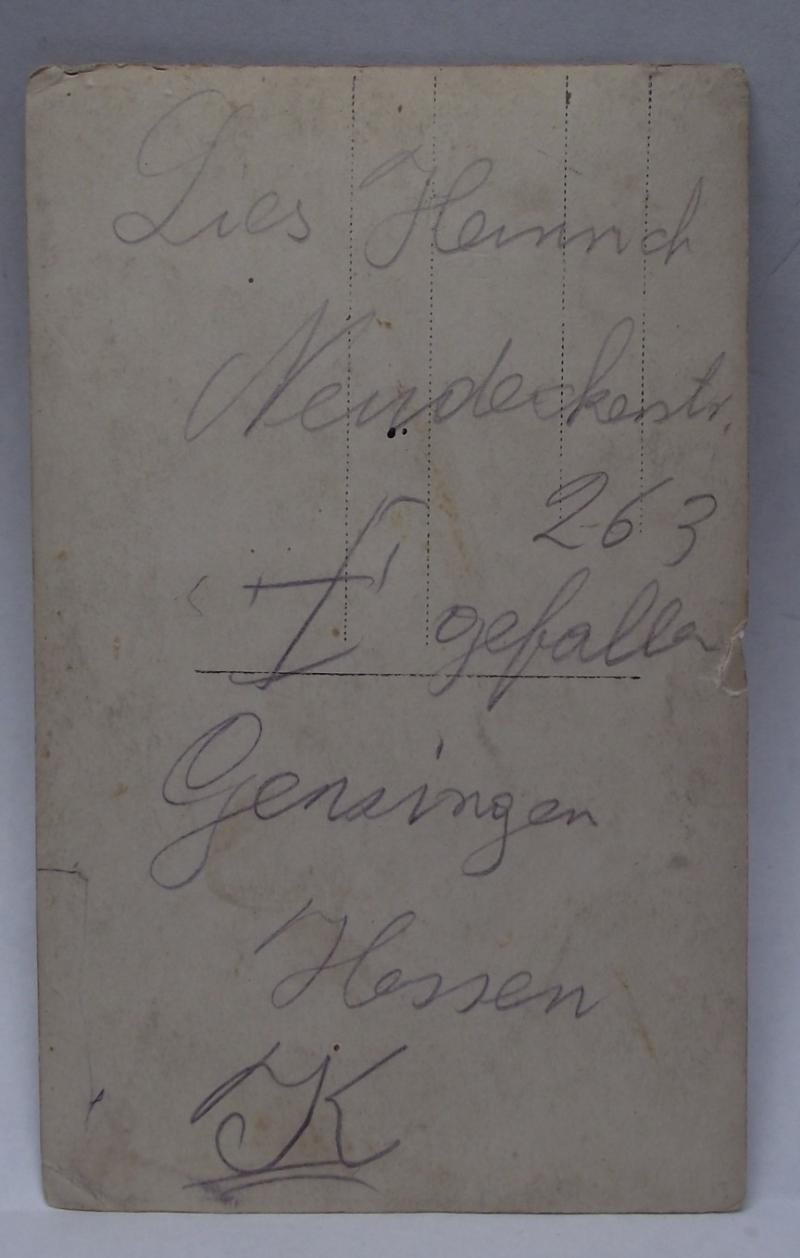 Dies Heinrich
Neudeckerstr.
263
gefallen
Gensingen
Hessen
K